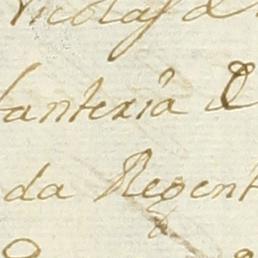 Nicolas de
fanteria D
da Regent